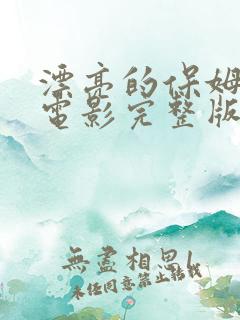 漂亮的保姆
電影完整版
無盡相思
未經同意禁止轉載